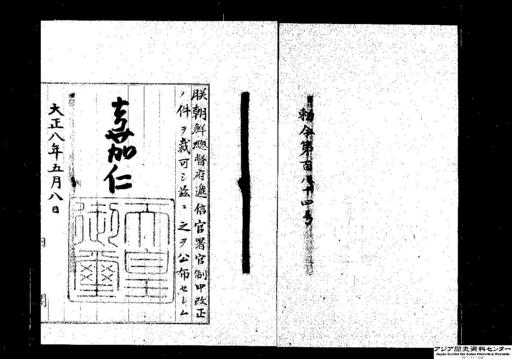 勅令第百八十四号
朕朝鮮總督府遞信官署官制中改正
ノ件ヲ裁可シ茲ニ之ヲ公布セシム
嘉仁
天皇
御璽
大正八年五月八日
内
閣
アジア歴史資料センター
Japan Center for Asian Historical Records